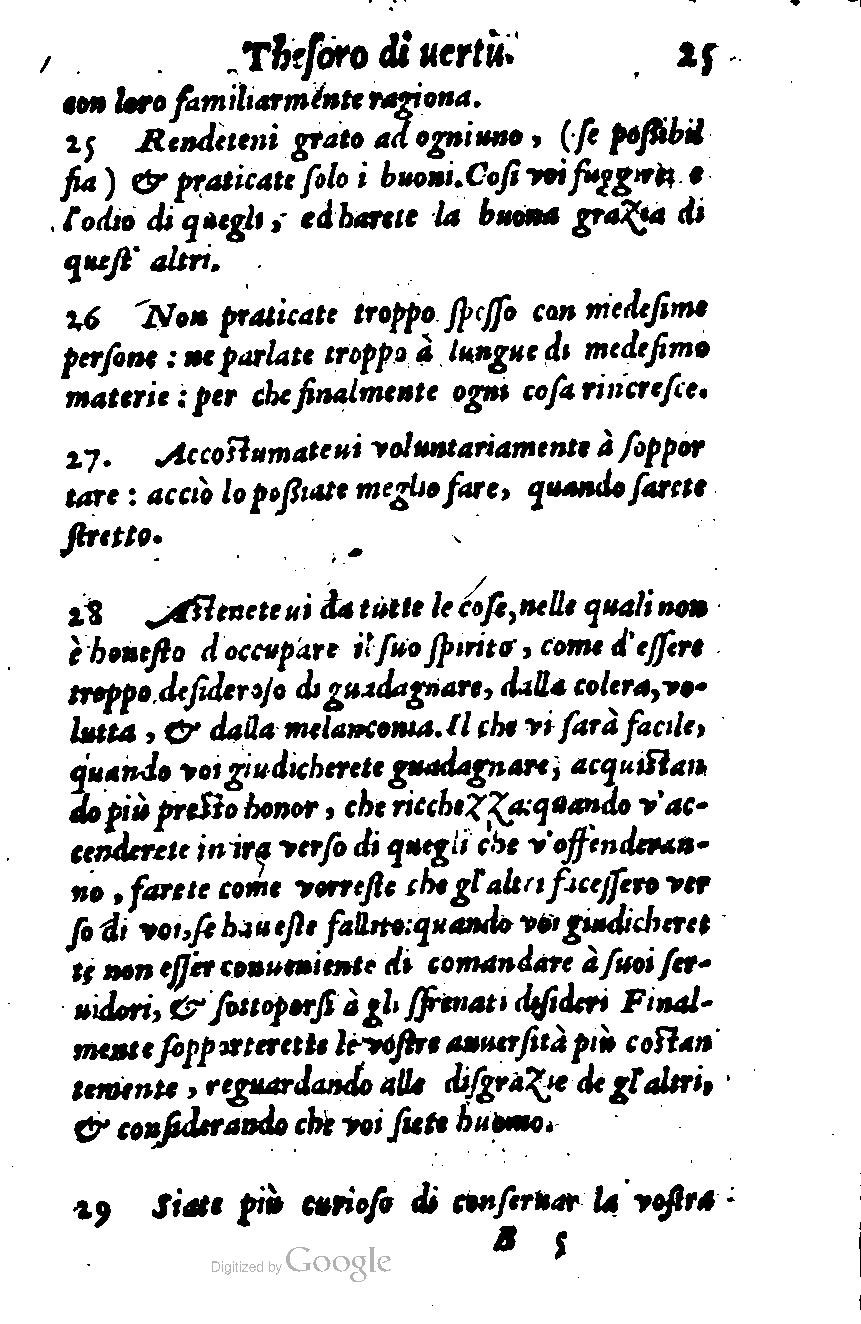 Theſoro di uertù. 25
con loro familiarmente ragiona.
25 Rendeteui grato ad ogniuno, (ſe poßibil
fia) & praticate ſolo i buoni. Coſi voi fuggirete
l'odio di quegli, ed harete la buona grazia di
queſt' altri.
26 Non praticate troppo ſpeſſo con medeſime
perſone : ne parlate troppo à lungue di medeſimo
materie : per che finalmente ogni coſa rincreſce.
27. Accoſtumateui voluntariamente à ſoppor
tare : acciò lo poßiate meglio fare, quando ſarete
ſtretto.
28 Aſteneteui da tutte le coſe, nelle quali non
è honeſto d occupare il ſuo ſpirito, come d'eſſere
troppo deſideroſo di guadagnare, dalla colera, vo-
lutta, & dalla melanconia. Il che vi ſarà facile,
quando voi giudicherete guadagnare, acquiſtan
do più preſto honor, che ricchezza: quando v'ac-
cenderete in ira verſo di quegli che v'offenderan-
no, farete come vorreſte che gl'altri faceſſero ver
ſo di voi, ſe haueſte fallito: quando voi giudicheret
te non eſſer conueniente di comandare à ſuoi ſer-
uidori, & ſottoporſi à gli ſfrenati deſideri Final-
mente ſopporterette le voſtre auuerſità più coſtan
temente, reguardando alle diſgrazie de gl'altri,
& conſiderando che voi ſiete huomo.
29 Siate più curioſo di conſeruar la voſtra
B 5
Digitized by Google